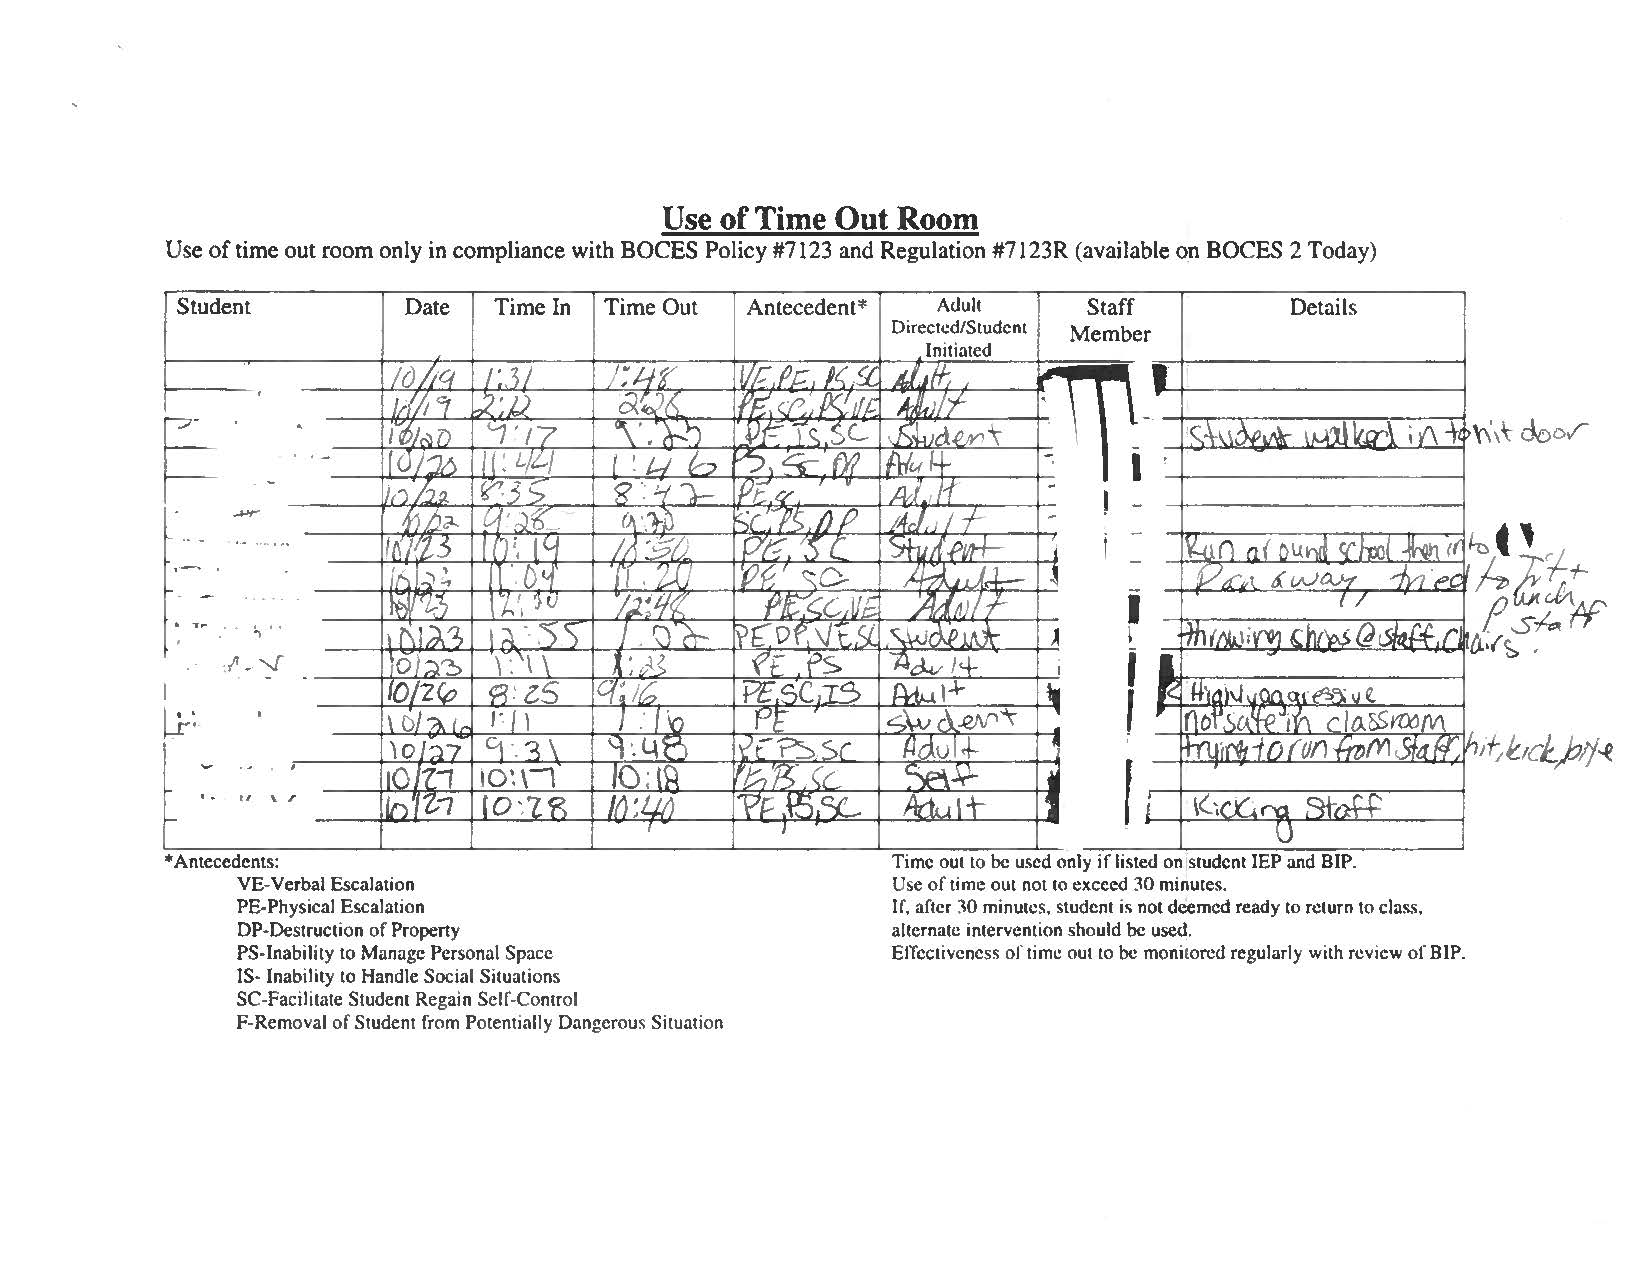 Use of Time Out Room
Use of time out room only in compliance with BOCES Policy #7123 and Regulation #7123R (available on BOCES 2 Today)
Student Date Time In Time Out Antecedent* Adult Directed/Student Initiated Staff Member Details
10/19 1:31 1:48 VE,PE, PS,SC Adult
10/19 2:12 2:26 PE,SC,PS,VE Adult
10/20 9:17 PE, IS,SC Student Student walked in to hit door
10/20 11:44 PS, SC, DP Adult
10/22 8:35 8:42 PE,SC Adult
10/22 9:26 9:30 SC,PS,DP Adult
10/23 10:19 10:30 PE, SC Student Run around school then into
10/23 11:09 11:20 PE, SC Adult Ran away, tried to hit + punch staff
10/23 12:48 PE,SC,VE Adult
10/23 12:55 1:02 PE,DP,VE,SC Student throwing shoes @ staff, chairs.
10/23 1:11 1:23 PE, PS Adult
10/26 8:25 9:16 PE SC,IS Adult Highly aggressive
10/26 1:11 1:16 PE student not safe in classroom
10/27 9:31 9:48 PE PS,SC Adult trying to run from staff, hit, kick, bite
10/27 10:17 10:18 SC Self
10/27 10:28 10:40 PE,PS,SC Adult Kicking Staff
*Antecedents:
VE-Verbal Escalation
PE-Physical Escalation
DP-Destruction of Property
PS-Inability to Manage Personal Space
IS- Inability to Handle Social Situations
SC-Facilitate Student Regain Self-Control
F-Removal of Student from Potentially Dangerous Situation
Time out to be used only if listed on student IEP and BIP.
Use of time out not to exceed 30 minutes.
If, after 30 minutes, student is not deemed ready to return to class,
alternate intervention should be used.
Effectiveness of time out to be monitored regularly with review of BIP.